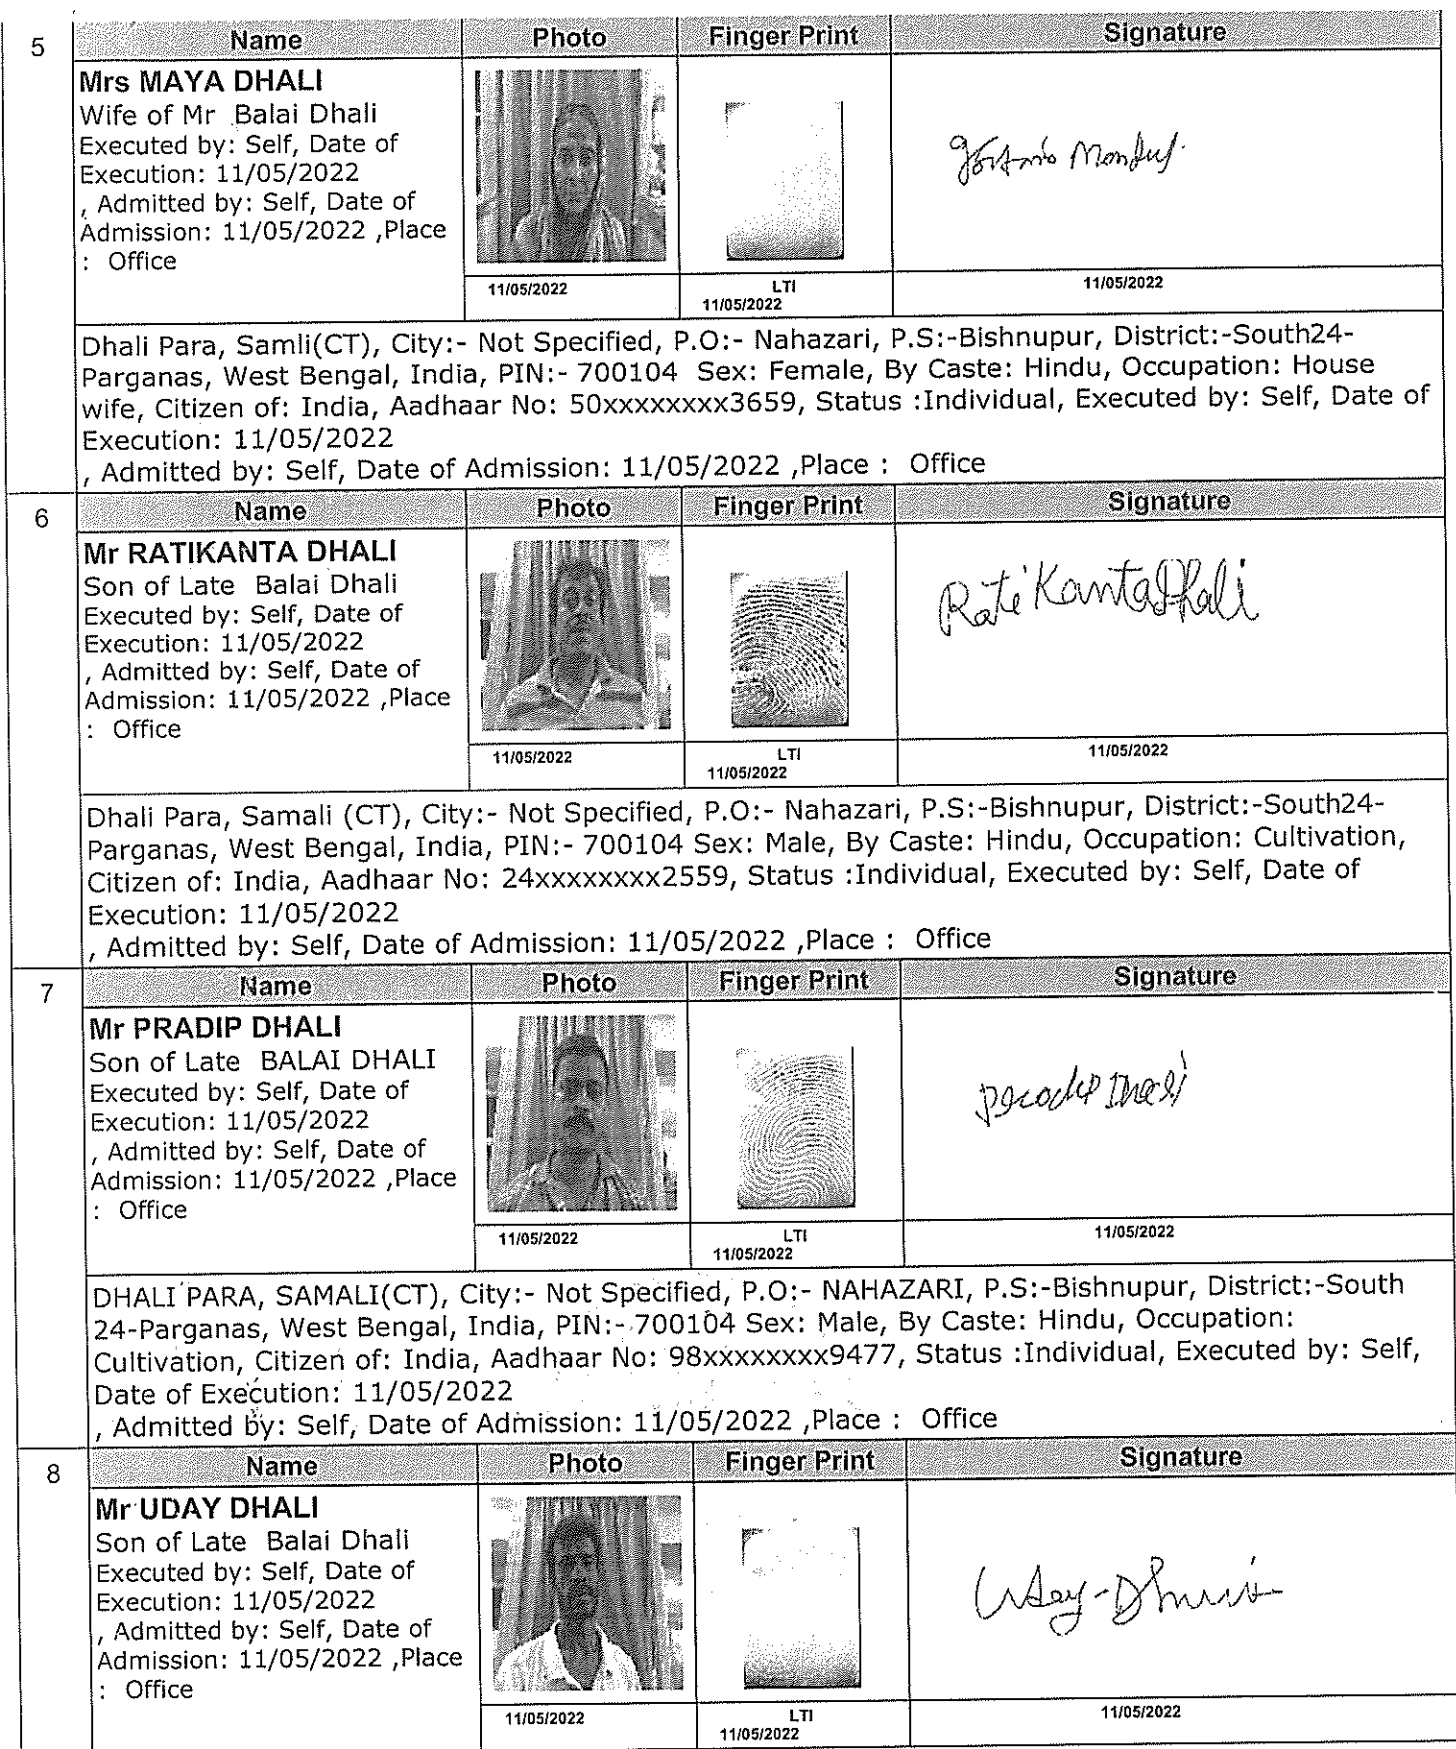 5 Name Photo Finger Print Signature
Mrs MAYA DHALI
Wife of Mr Balai Dhali
Executed by: Self, Date of
Execution: 11/05/2022
, Admitted by: Self, Date of
Admission: 11/05/2022 ,Place
: Office
11/05/2022 LTI 11/05/2022
11/05/2022
Dhali Para, Samli(CT), City:- Not Specified, P.O:- Nahazari, P.S:-Bishnupur, District:-South24-
Parganas, West Bengal, India, PIN:- 700104 Sex: Female, By Caste: Hindu, Occupation: House
wife, Citizen of: India, Aadhaar No: 50xxxxxxxx3659, Status :Individual, Executed by: Self, Date of
Execution: 11/05/2022
, Admitted by: Self, Date of Admission: 11/05/2022 ,Place : Office
6 Name Photo Finger Print Signature
Mr RATIKANTA DHALI
Son of Late Balai Dhali
Executed by: Self, Date of
Execution: 11/05/2022
, Admitted by: Self, Date of
Admission: 11/05/2022 ,Place
: Office
Rati Kanta Dhali
11/05/2022 LTI 11/05/2022
11/05/2022
Dhali Para, Samali (CT), City:- Not Specified, P.O:- Nahazari, P.S:-Bishnupur, District:-South24-
Parganas, West Bengal, India, PIN:- 700104 Sex: Male, By Caste: Hindu, Occupation: Cultivation,
Citizen of: India, Aadhaar No: 24xxxxxxxx2559, Status :Individual, Executed by: Self, Date of
Execution: 11/05/2022
, Admitted by: Self, Date of Admission: 11/05/2022 ,Place : Office
7 Name Photo Finger Print Signature
Mr PRADIP DHALI
Son of Late BALAI DHALI
Executed by: Self, Date of
Execution: 11/05/2022
, Admitted by: Self, Date of
Admission: 11/05/2022 ,Place
: Office
11/05/2022 LTI 11/05/2022
11/05/2022
DHALI PARA, SAMALI(CT), City:- Not Specified, P.O:- NAHAZARI, P.S:-Bishnupur, District:-South
24-Parganas, West Bengal, India, PIN:- 700104 Sex: Male, By Caste: Hindu, Occupation:
Cultivation, Citizen of: India, Aadhaar No: 98xxxxxxxx9477, Status :Individual, Executed by: Self,
Date of Execution: 11/05/2022
, Admitted by: Self, Date of Admission: 11/05/2022 ,Place : Office
8 Name Photo Finger Print Signature
Mr UDAY DHALI
Son of Late Balai Dhali
Executed by: Self, Date of
Execution: 11/05/2022
, Admitted by: Self, Date of
Admission: 11/05/2022 ,Place
: Office
11/05/2022 LTI 11/05/2022
11/05/2022